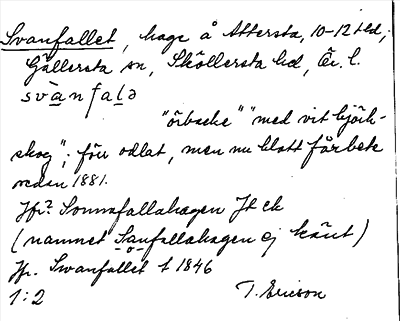 Svanfallet, hage å Attersta, 10-12 tld,
Gällersta sn, Sköllersta hd, Ör. l.
svanfalə
"örbacke" "med vit björk-
skog"; förr odlat, men nu blott fårbete
sedan 1881.
Jfr? Sonnafallahagen Jt ek
(namnet Sanfallahagen ej känt)
Jfr. Swanfallet t 1846
1:2 T. Ericson